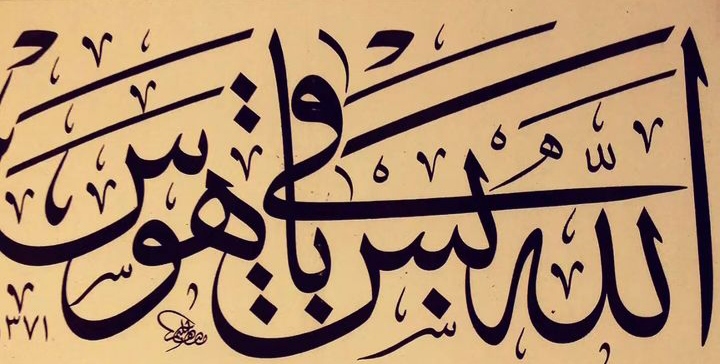 الله بس باقی هوس
١٣٧١